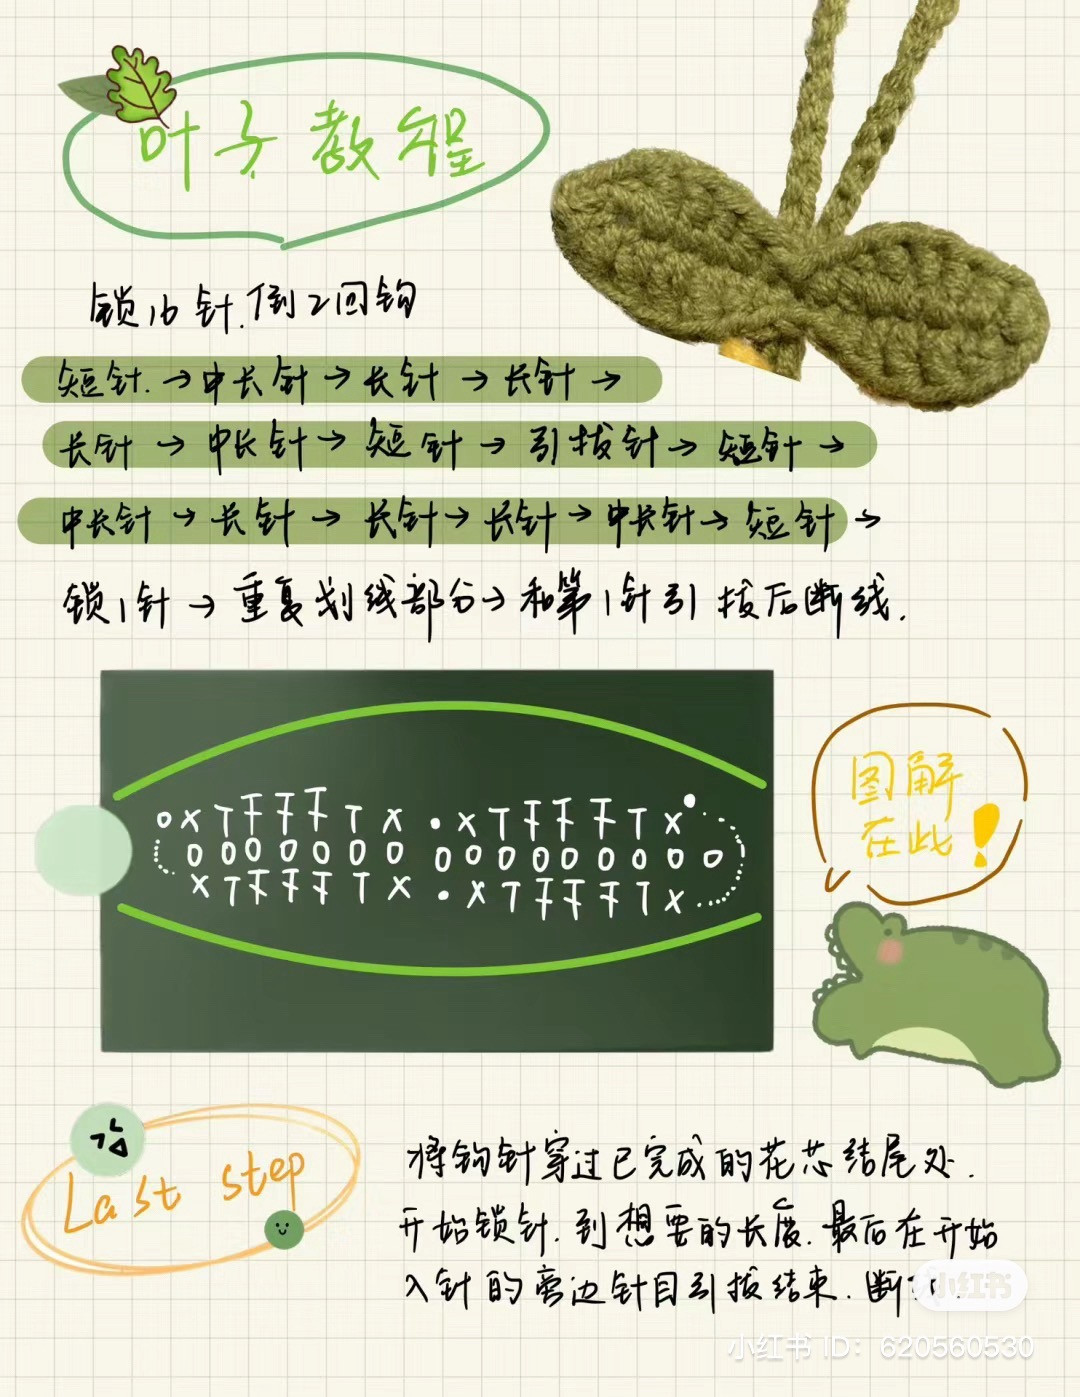 叶子教程
锁16针.倒2回钩
短针.→中长针→长针→长针→
长针→中长针→短针→引拔针→短针→
中长针→长针→长针→长针→中长针→短针→
锁1针→重复划线部分→和第1针引拔后断线.
图解
在此!
Last step
将钩针穿过已完成的花芯结尾处.
开始锁针.到想要的长度.最后在开始
入针的旁边针目引拔结束.断
小红书
小红书 ID: 620560530